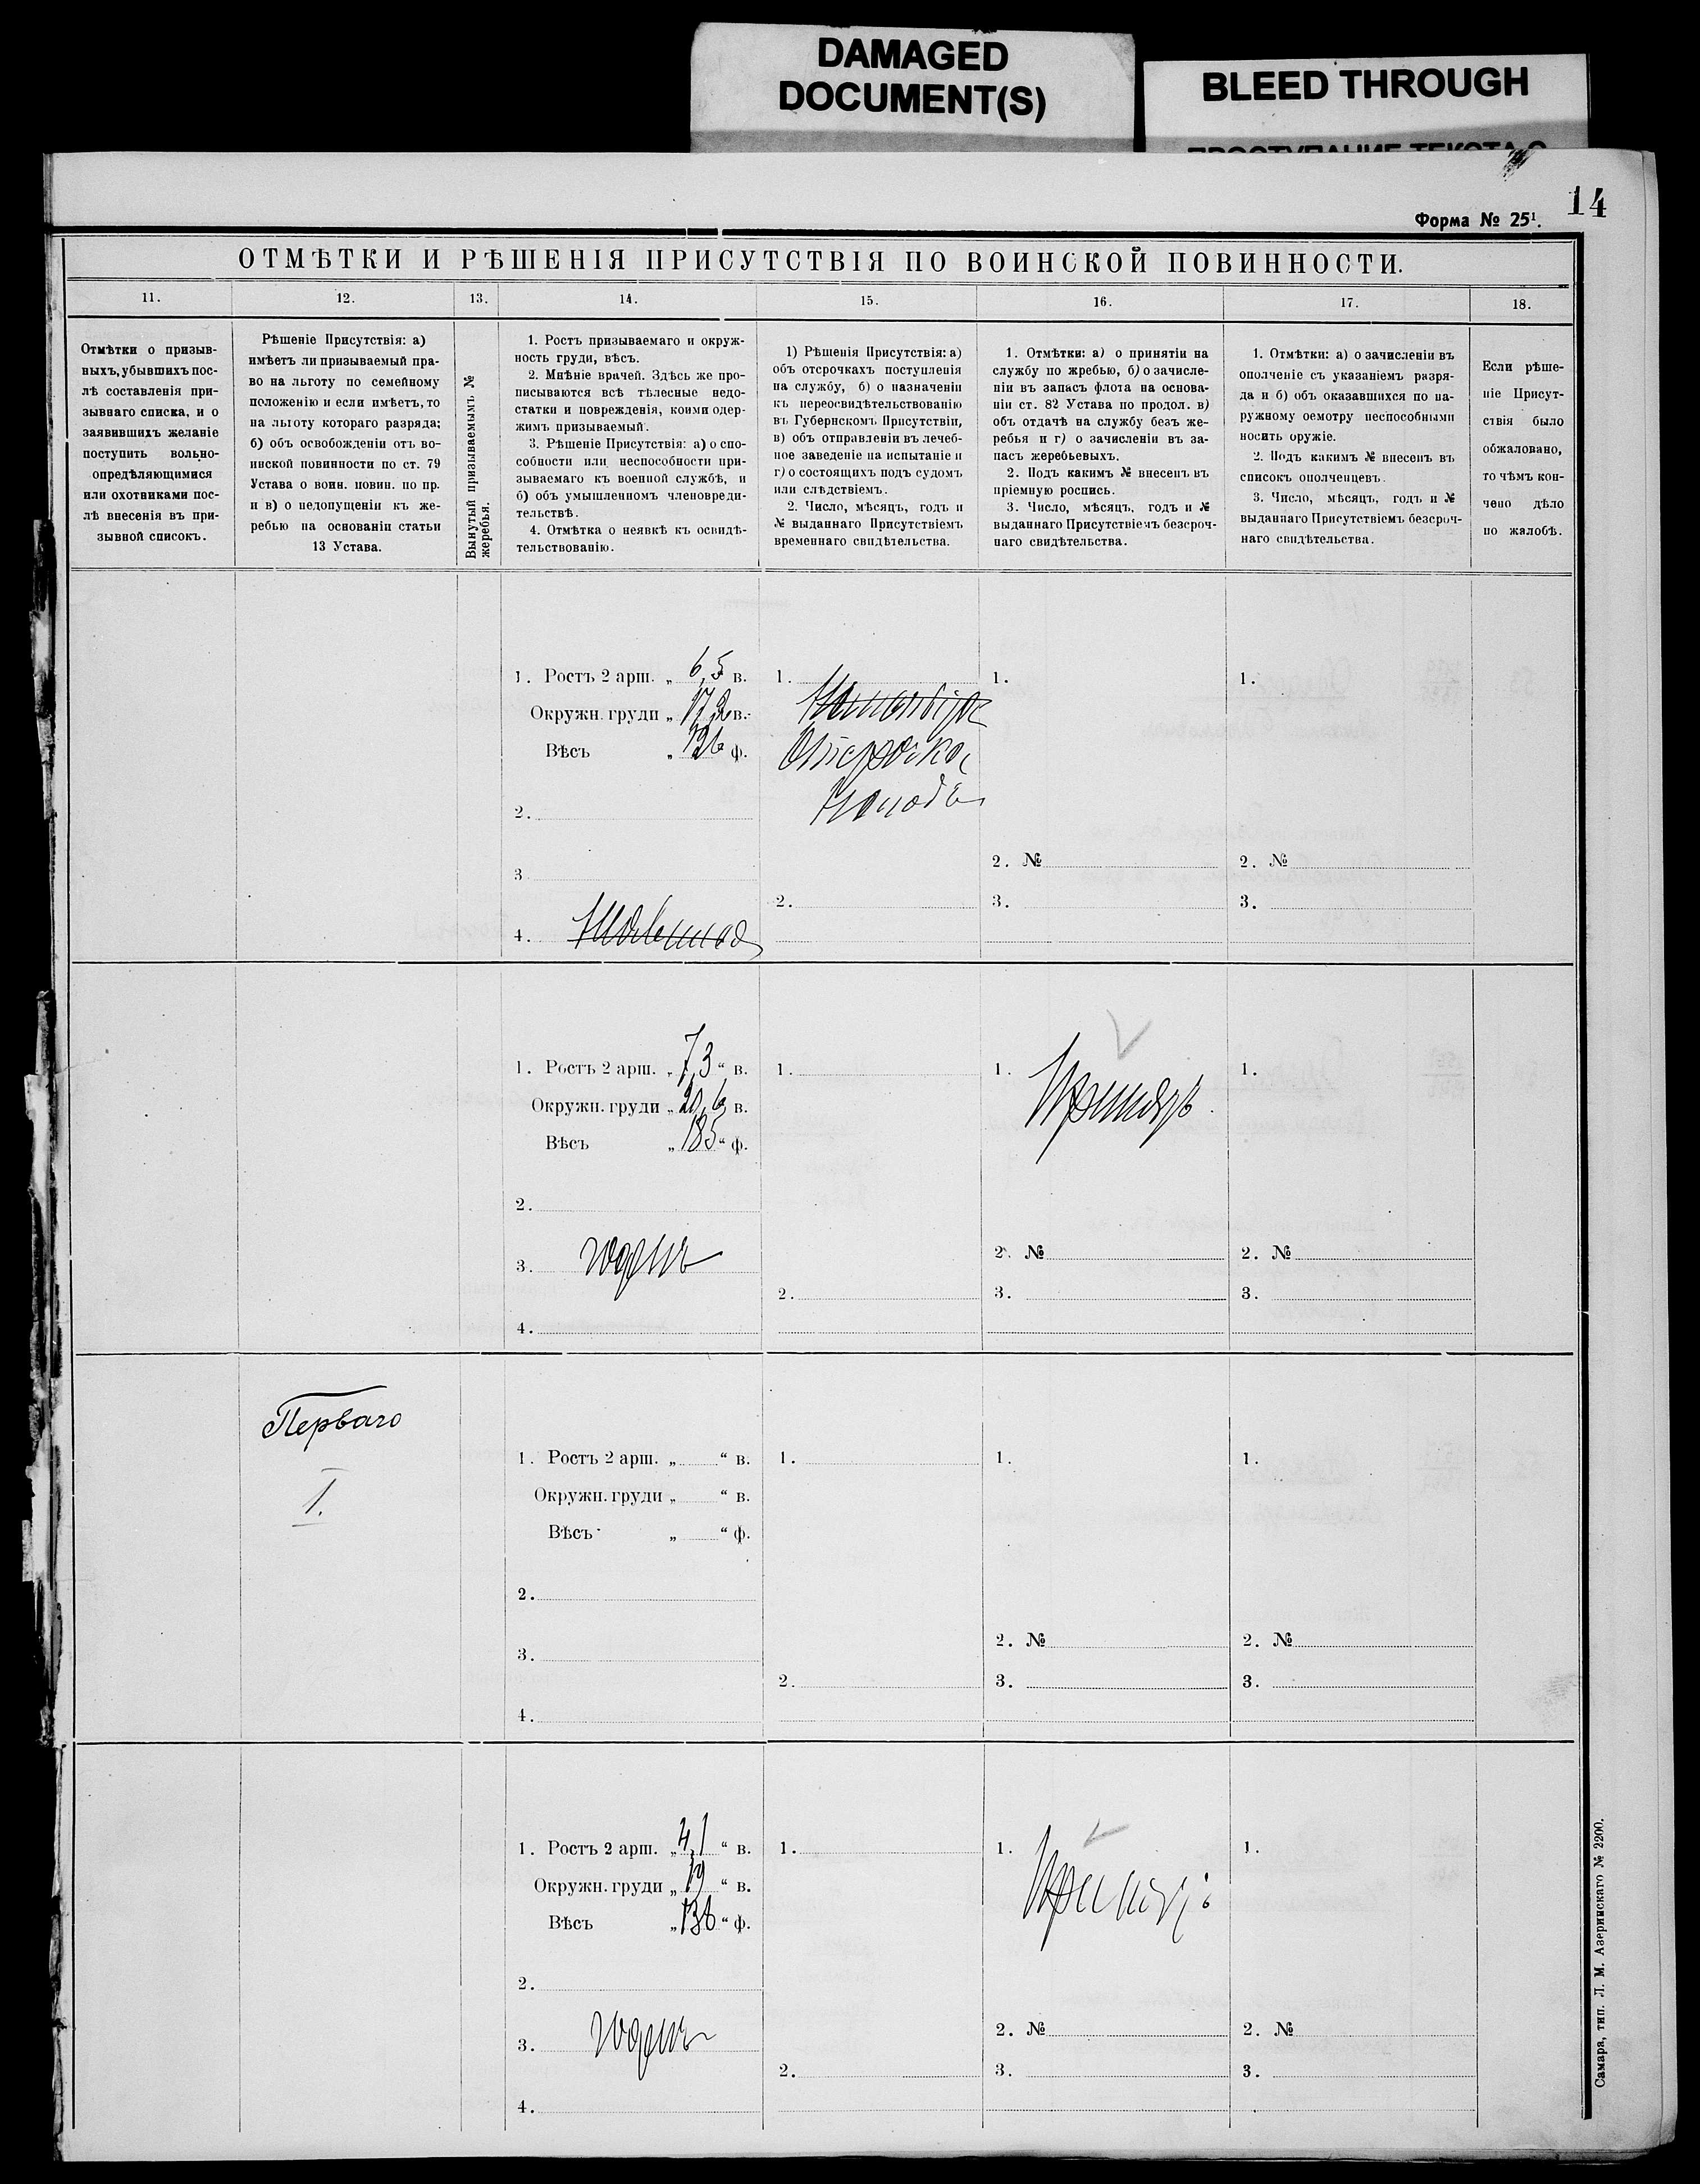 DAMAGED
DOCUMENT(S)
BLEED THROUGH
14
Форма № 25¹.
ОТМѢТКИ И РѢШЕНІЯ ПРИСУТСТВІЯ ПО ВОИНСКОЙ ПОВИННОСТИ.
11.
12.
13.
14.
15.
16.
17.
18.
Отмѣтки о призыв-
ныхъ, убывшихъ пос-
лѣ составленія при-
зывнаго списка, и о
заявившихъ желаніе
поступить вольно-
опредѣляющимися
или охотниками пос-
лѣ внесенія въ при-
зывной списокъ.
Рѣшеніе Присутствія: а)
имѣетъ ли призываемый пра-
во на льготу по семейному
положенію и если имѣетъ, то
на льготу котораго разряда;
б) объ освобожденіи отъ во-
инской повинности по ст. 79
Устава о воин. повин. по пр.
и в) о недопущеніи къ же-
ребью на основаніи статьи
13 Устава.
Вынутый призываемымъ №
жеребья.
1. Ростъ призываемаго и окруж-
ность груди, вѣсъ.
2. Мнѣніе врачей. Здѣсь же про-
писываются всѣ тѣлесные недо-
статки и поврежденія, коими одер-
жимъ призываемый.
3. Рѣшеніе Присутствія: а) о спо-
собности или неспособности при-
зываемаго къ военной службѣ, и
б) объ умышленномъ членовреди-
тельствѣ.
4. Отмѣтка о неявкѣ къ освидѣ-
тельствованію.
1) Рѣшенія Присутствія: а)
объ отсрочкахъ поступленія
на службу, б) о назначеніи
къ переосвидѣтельствованію
въ Губернскомъ Присутствіи,
в) объ отправленіи въ лечеб-
ное заведеніе на испытаніе и
г) о состоящихъ подъ судомъ
или слѣдствіемъ.
2. Число, мѣсяцъ, годъ и
№ выданнаго Присутствіемъ
временнаго свидѣтельства.
1. Отмѣтки: а) о принятіи на
службу по жребью, б) о зачисле-
ніи въ запасъ флота на основа-
ніи ст. 82 Устава по продол. в)
объ отдачѣ на службу безъ же-
ребья и г) о зачисленіи въ за-
пасъ жеребьевыхъ.
2. Подъ какимъ № внесенъ въ
пріемную роспись.
3. Число, мѣсяцъ, годъ и №
выданнаго Присутствіемъ безсроч-
наго свидѣтельства.
1. Отмѣтки: а) о зачисленіи въ
ополченіе съ указаніемъ разря-
да и б) объ оказавшихся по на-
ружному осмотру неспособными
носить оружіе.
2. Подъ какимъ № внесенъ въ
списокъ ополченцевъ.
3. Число, мѣсяцъ, годъ и №
выданнаго Присутствіемъ безсроч-
наго свидѣтельства.
Если рѣше-
ніе Присут-
ствія было
обжаловано,
то чѣмъ кон-
чено дѣло
по жалобѣ.
1. Ростъ 2 арш. „ 6,5 в.
Окружн. груди „ в.
Вѣсъ „ 126 ф.
2.
3
4.
1.
Отсрочка
2.
1.
2. №
3.
1.
2. №
3.
1. Ростъ 2 арш. „ 7,3 “ в.
Окружн. груди „ 20,6 в.
Вѣсъ „ 185 “ ф.
2.
3. годенъ
4.
1.
2.
1. Принятъ
2. №
3.
1.
2. №
3.
Перваго
I.
1. Ростъ 2 арш. „ “ в.
Окружн. груди „ “ в.
Вѣсъ „ “ ф.
2.
3.
4.
1.
2.
1.
2. №
3.
1.
2. №
3.
1. Ростъ 2 арш. „ 4,1 “ в.
Окружн. груди „ 19 “ в.
Вѣсъ „ “ ф.
2.
3. годенъ
4.
1.
2.
1. Принятъ
2. №
3.
1.
2. №
3.
Самара, тип. Л. М. Азеринскаго № 2200.